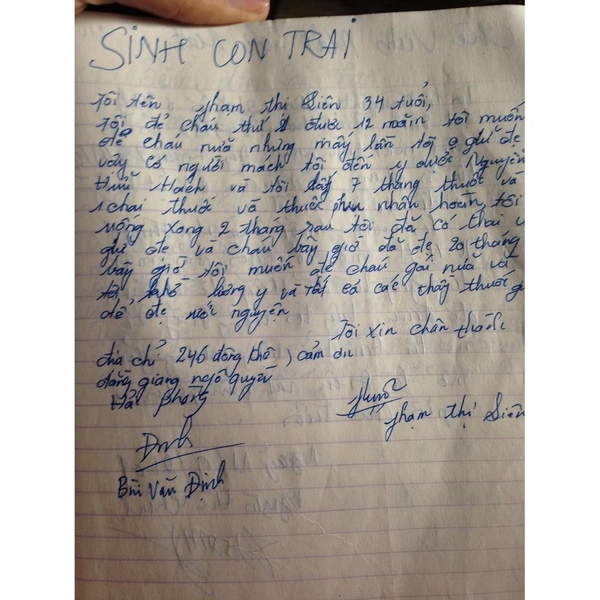 SINH CON TRAI
Tôi tên phạm thị Siên 34 tuổi,
Tôi đẻ cháu thứ 2 được 12 năm tôi muốn
đẻ cháu nữa nhưng mấy lần tôi o giữ đc
vậy có người mách tôi đến y dược Nguyễn
Hữu Hách và tôi lấy 7 thang thuốc và
1 chai thuốc và thuốc nhân hoàn, tôi
uống xong 2 tháng sau tôi đã có thai và
giữ đc và cháu bây giờ đã đc 20 tháng
bây giờ tôi muốn đẻ cháu gái nữa và
tôi nhờ lương y và tất cả các thầy thuốc
để đc nước nguyện
Tôi xin chân thành
cảm ơn
địa chỉ 246 đông khê
đằng giang ngô quyền
Hải phòng
phạm thị Siên
Định
Bùi Văn Định